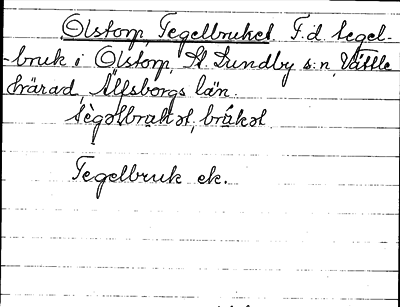 Olstorp Tegelbruket F.d. tegel-
-bruk i Olstorp, St. Lundby s:n, Vättle
härad, Älfsborgs län.
tègəlbrukət, brúkət
Tegelbruk ek.